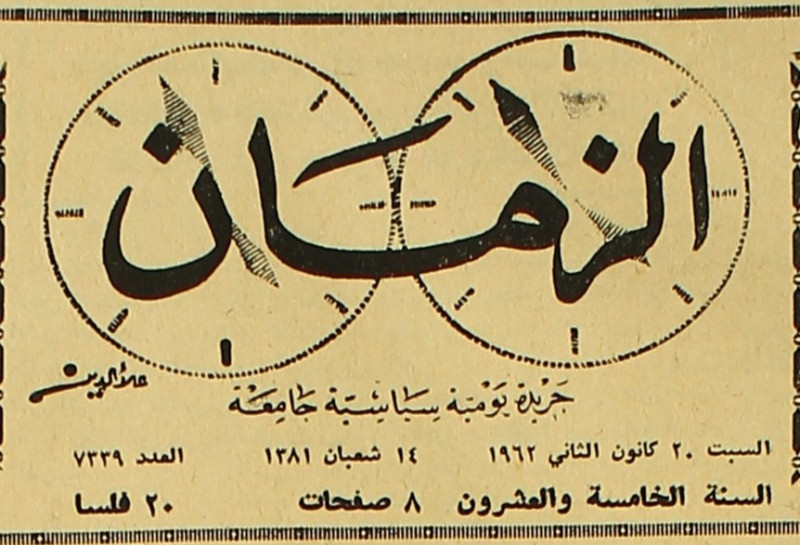 الزمان
علاء الدين
جريدة يومية سياسية جامعة
السبت ٢٠ كانون الثاني ١٩٦٢ ١٤ شعبان ١٣٨١ العدد ٧٣٣٩
السنة الخامسة والعشرون ٨ صفحات ٢٠ فلسا